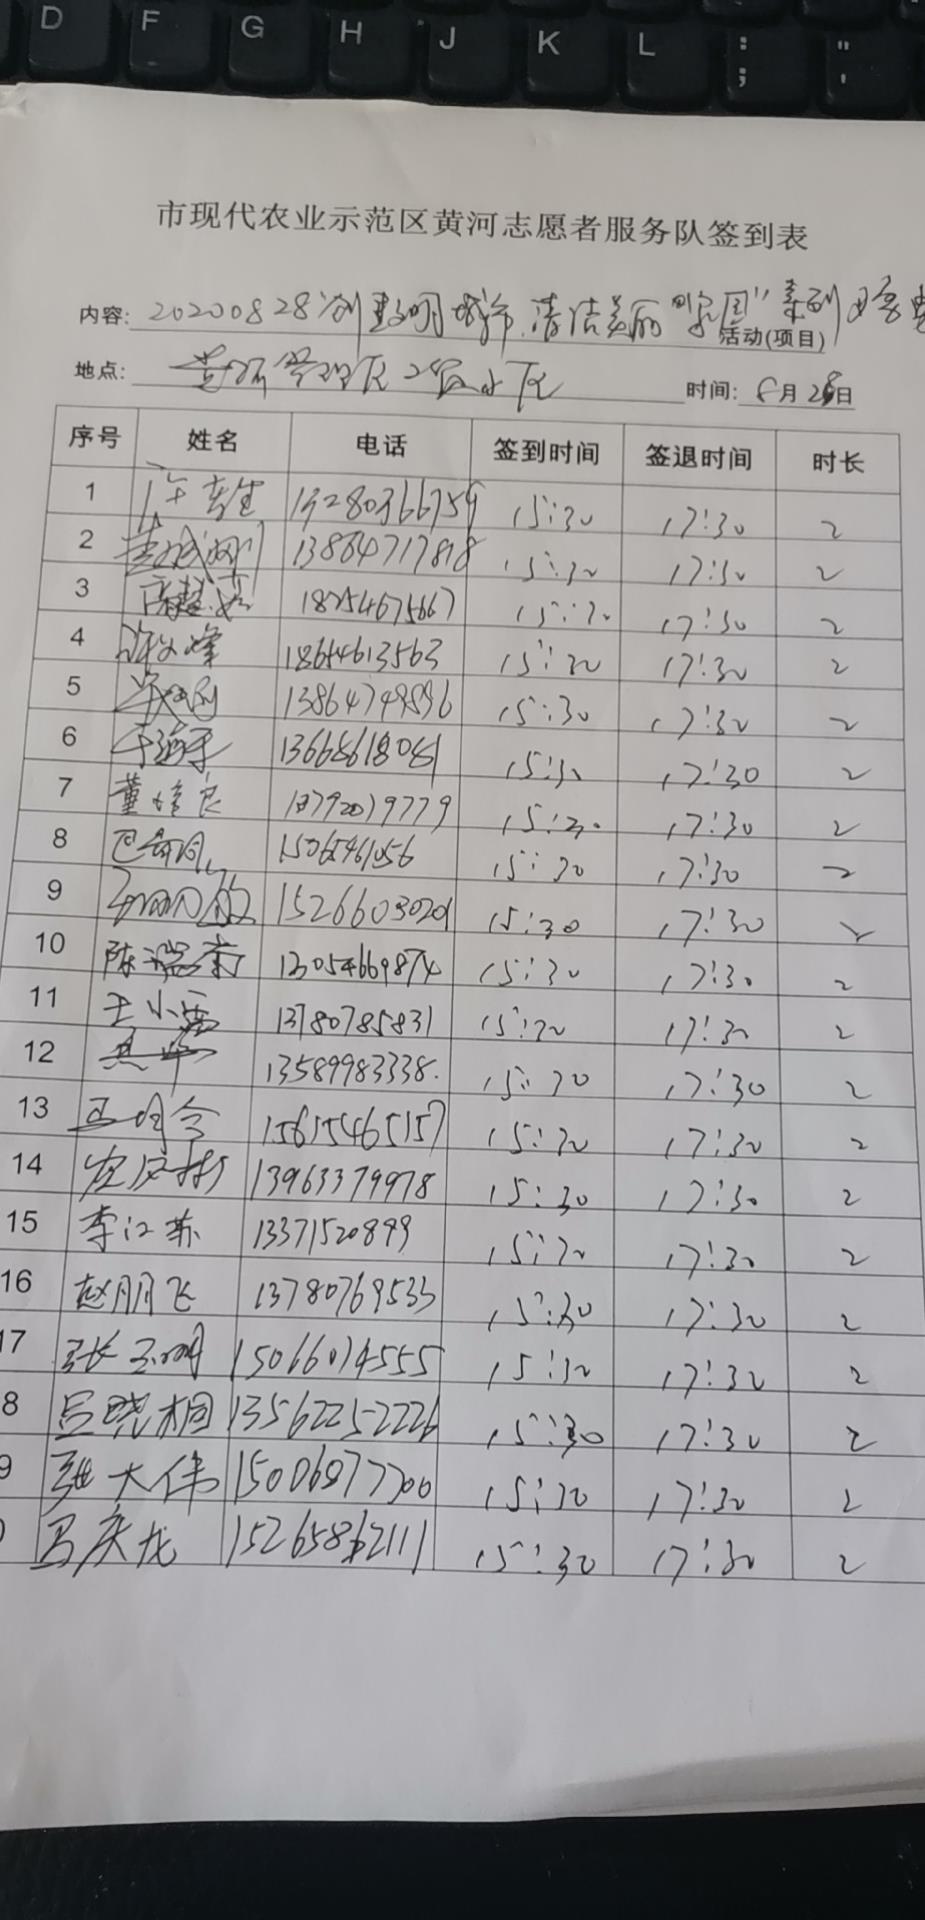 D F G H J K L : ; " '
市现代农业示范区黄河志愿者服务队签到表
内容: 20200828"创建文明城市、清洁美丽"家园"系列 活动(项目)
地点: 二级小区 时间: 8月28日
序号 姓名 电话 签到时间 签退时间 时长
1 15:30 17:30 2
2 13864717818 15:30 17:30 2
3 18254675667 15:30 17:30 2
4 许文峰 18654613563 15:30 17:30 2
5 15:30 17:30 2
6 15:30 17:30 2
7 董 良 18792019779 15:30 17:30 2
8 15065461056 15:30 17:30 2
9 15266030201 15:30 17:30 2
10 陈瑞 13054669874 15:30 17:30 2
11 王小雷 13780785831 15:30 17:30 2
12 13589983338. 15:30 17:30 2
13 15615465157 15:30 17:30 2
14 13963379978 15:30 17:30 2
15 李江苏 13371520899 15:30 17:30 2
16 赵朋飞 13780769533 15:30 17:30 2
17 张玉明 15066014555 15:30 17:30 2
8 吕晓桐 13562252226 15:30 17:30 2
9 张大伟 15006877700 15:30 17:30 2
马庆龙 15265862111 15:30 17:30 2